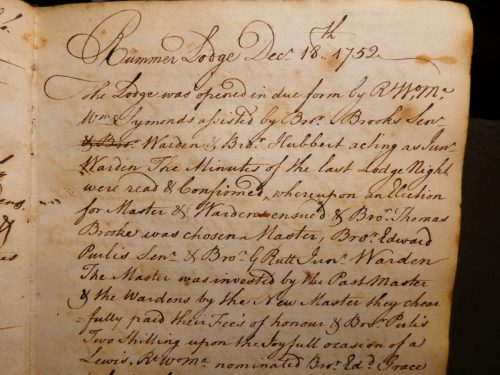 Rummer Lodge Decr. 18th. 1752
The Lodge was opened in due form by Rt. Wo. Ma.
Wm. Symonds assisted by Bror. Brooks Senr.
& Bror. Warden & Bror. Hubbert acting as Junr.
Warden The Minutes of the last Lodge Night
were read & Confirmed, whereupon an Election
for Master & Wardens ensued & Bror. Thomas
Brooke was chosen Master, Bror. Edward
Purlis Senr. & Bror. G Rutt Junr. Warden
The Master was invested by the Past Master
& the Wardens by the New Master they chear
=fully paid their Fee's of honour & Bror. Pulis
Two Shilling upon the Joyfull ocasion of a
Lewis, Rt. Wo. Ma. nominated Bror. Edd. Grace